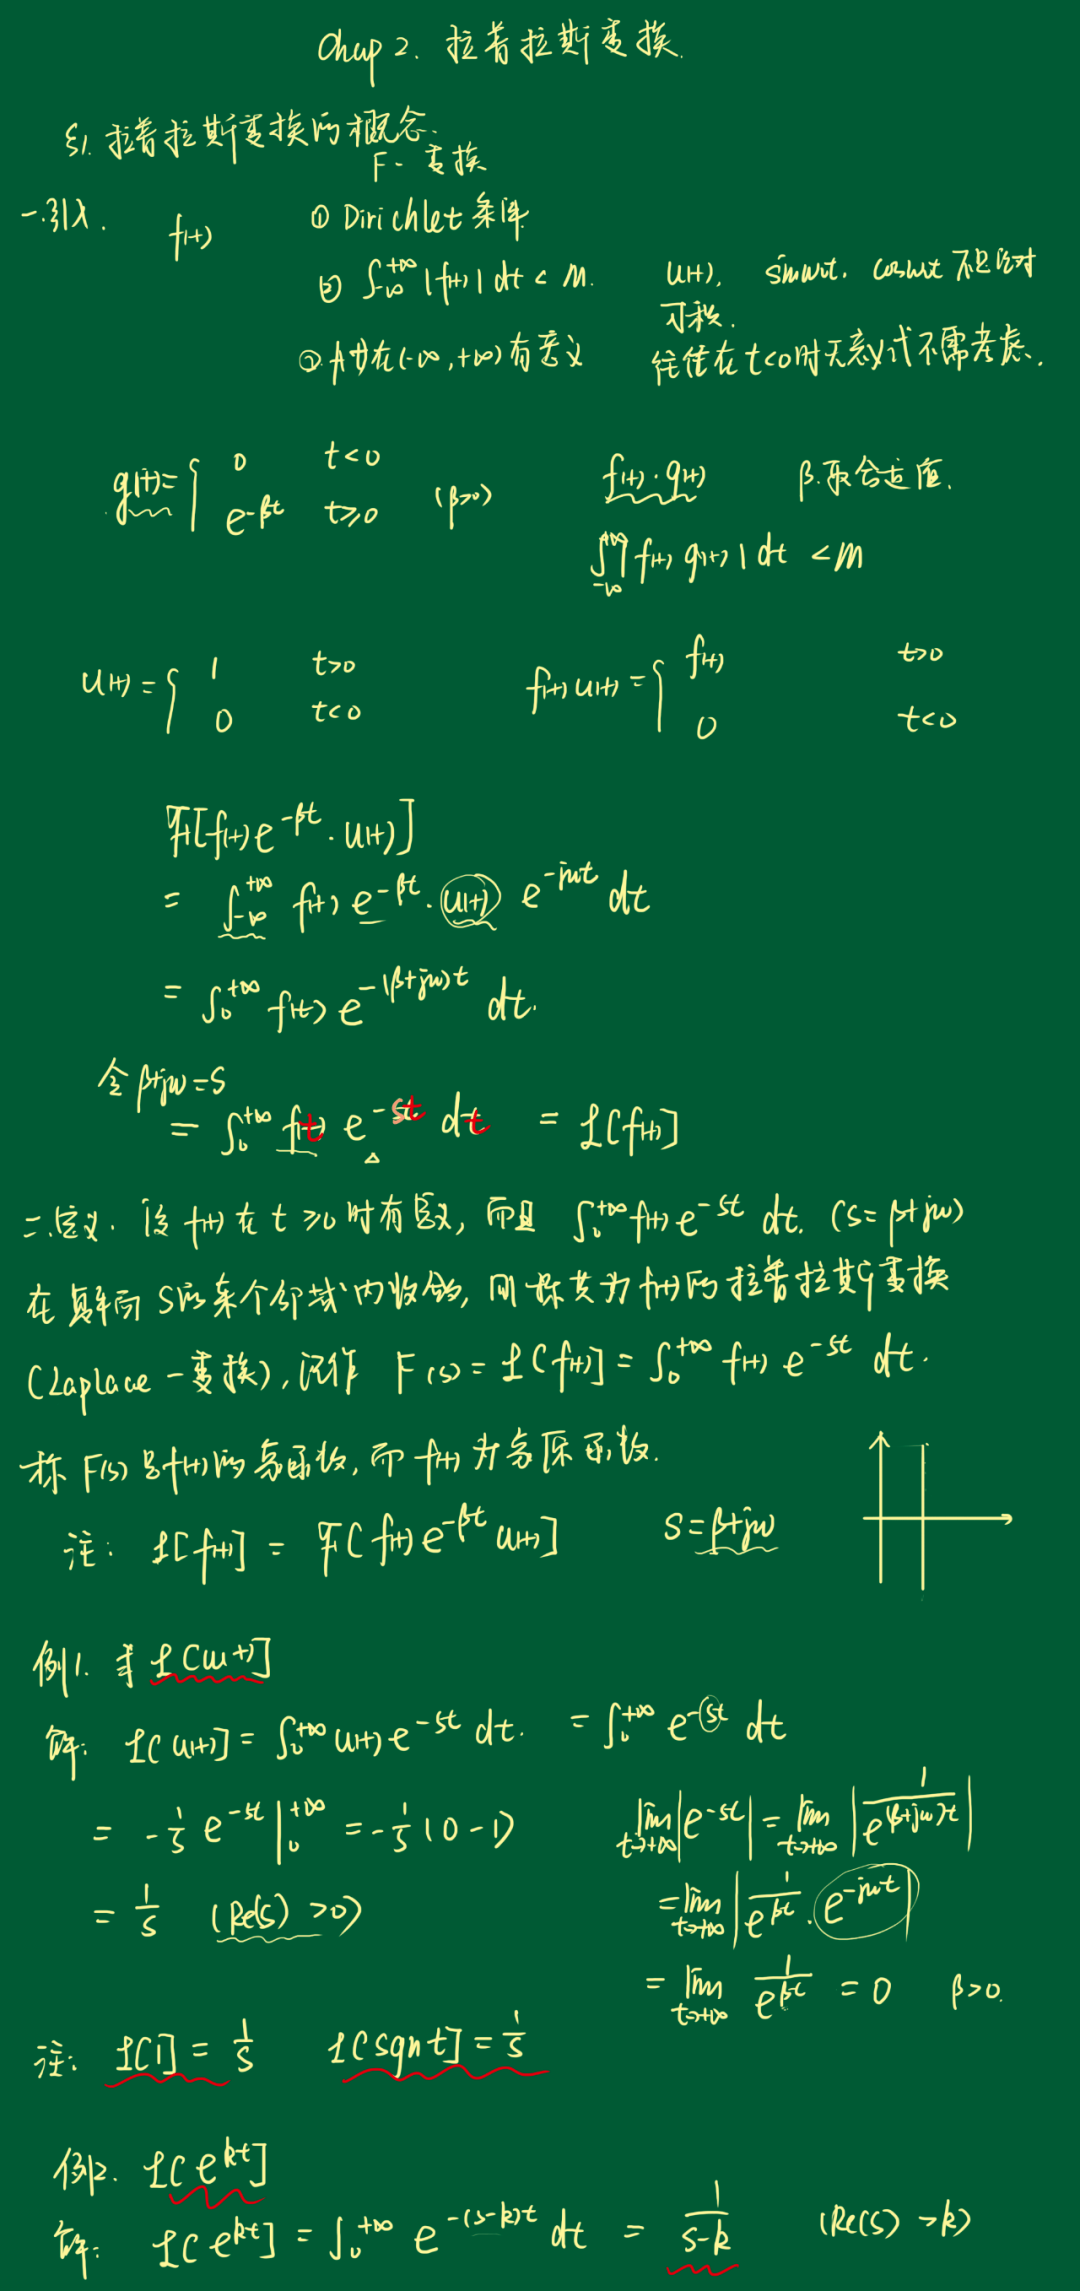 Chap 2. 拉普拉斯变换.
§1. 拉普拉斯变换的概念.
F-变换
一.引入. f(t) ① Dirichlet 条件
② ∫_{-∞}^{+∞} |f(t)| dt < M. u(t), sinωt, cosωt 不是绝对可积.
③ f(t)在(-∞,+∞)有意义 往往在t<0时无意义或不需考虑.
g(t) = { 0 t<0 ; e^{-βt} t≥0 (β>0)
f(t)·g(t) β取合适值.
∫_{-∞}^{+∞} |f(t) g(t)| dt < M
u(t) = { 1 t>0 ; 0 t<0
f(t)u(t) = { f(t) t>0 ; 0 t<0
ℱ[f(t)e^{-βt}·u(t)]
= ∫_{-∞}^{+∞} f(t) e^{-βt}·u(t) e^{-jωt} dt
= ∫_0^{+∞} f(t) e^{-(β+jω)t} dt.
令 β+jω=s
= ∫_0^{+∞} f(t) e^{-st} dt = ℒ[f(t)]
二.定义. 设 f(t) 在 t≥0 时有定义, 而且 ∫_0^{+∞} f(t) e^{-st} dt. (s=β+jω)
在复平面 s的某个邻域内收敛, 则称其为 f(t)的拉普拉斯变换
(Laplace-变换), 记作 F(s) = ℒ[f(t)] = ∫_0^{+∞} f(t) e^{-st} dt.
称 F(s) 是f(t)的象函数, 而 f(t) 为象原函数.
注: ℒ[f(t)] = ℱ[f(t) e^{-βt} u(t)] s=β+jω
例1. 求 ℒ[u(t)]
解: ℒ[u(t)] = ∫_0^{+∞} u(t) e^{-st} dt. = ∫_0^{+∞} e^{-st} dt
= -1/s e^{-st} |_0^{+∞} = -1/s (0-1)
= 1/s (Re(s) >0)
lim_{t→+∞} |e^{-st}| = lim_{t→+∞} |1/e^{(β+jω)t}|
= lim_{t→+∞} |1/e^{βt} · e^{-jωt}|
= lim_{t→+∞} 1/e^{βt} = 0 β>0.
注: ℒ[1] = 1/s ℒ[sgn t] = 1/s
例2. ℒ[e^{kt}]
解: ℒ[e^{kt}] = ∫_0^{+∞} e^{-(s-k)t} dt = 1/(s-k) (Re(s) >k)